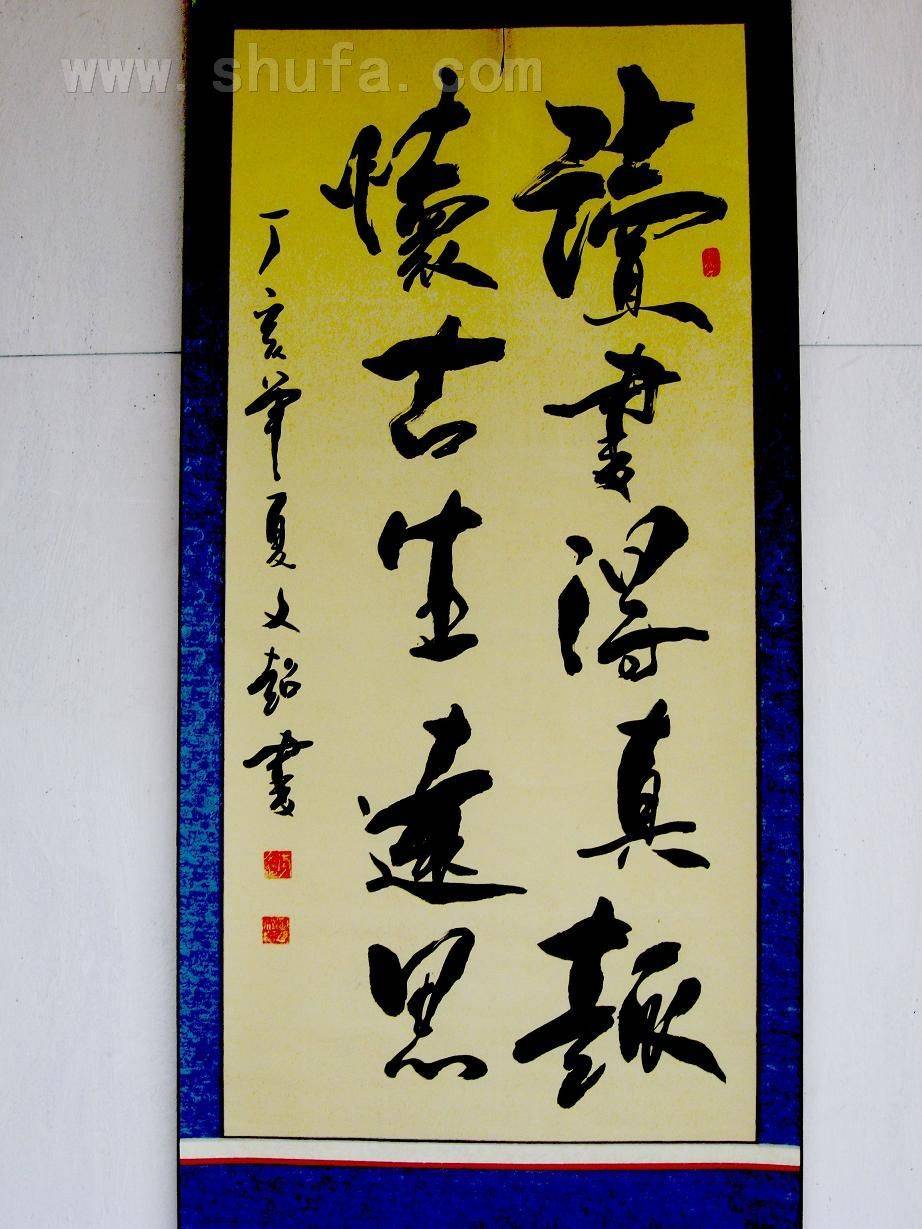 www.shufa.com
讀書得真趣
懷古生遠思
丁亥年夏文超書